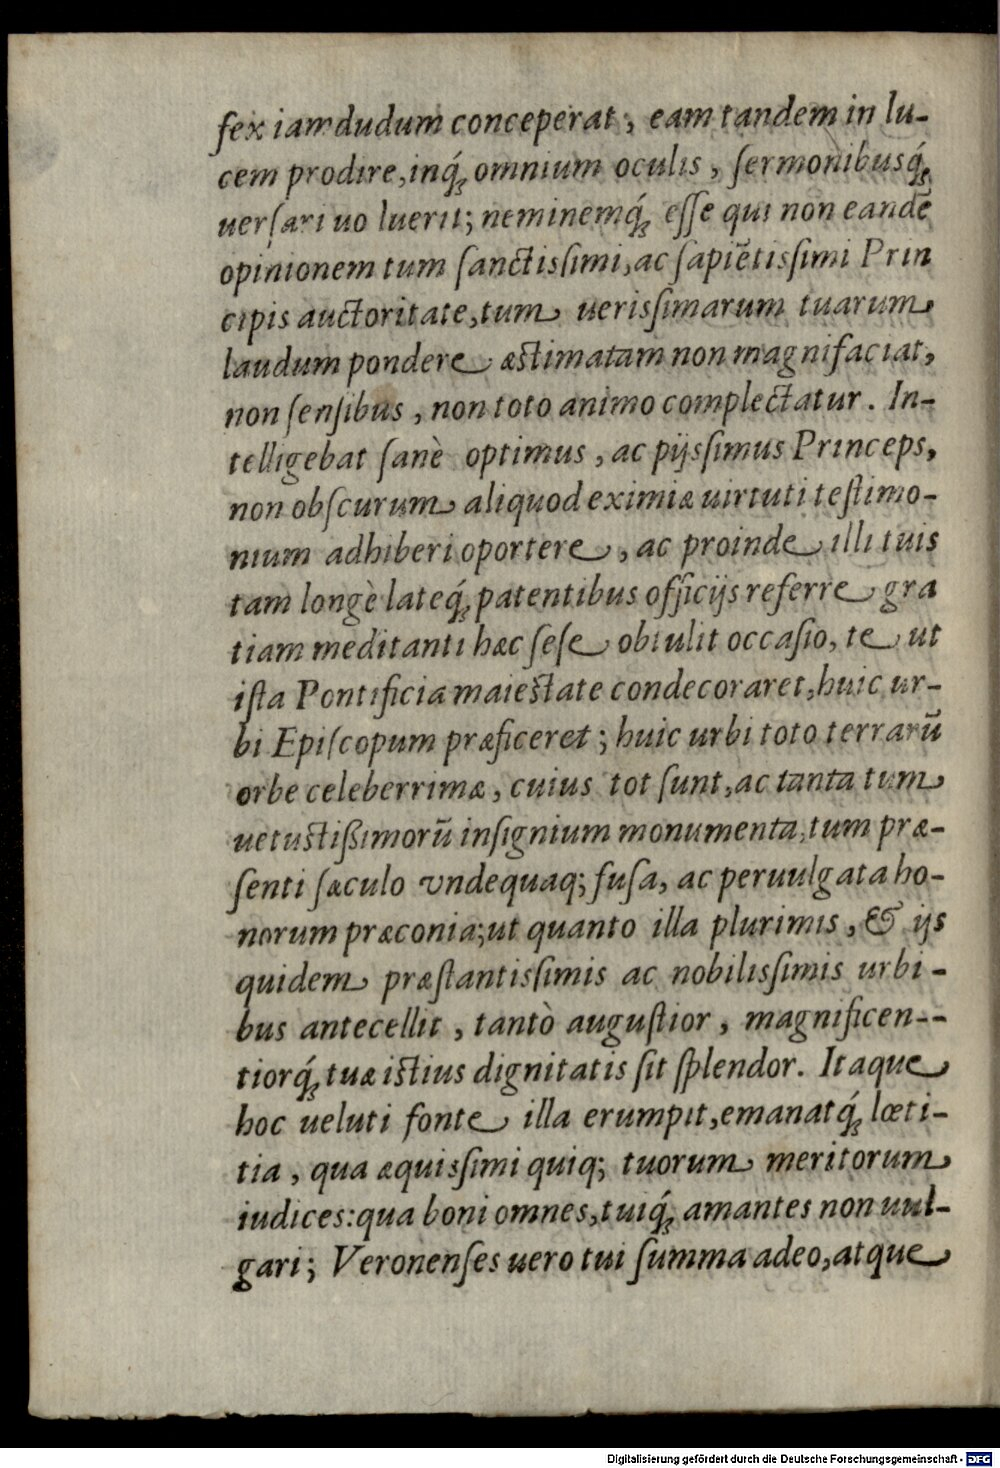 fex iamdudum conceperat, eam tandem in lu-
cem prodire, inq́; omnium oculis, ſermonibusq́;
uerſari uoluerit; neminemq́; eſſe qui non eandē
opinionem tum ſanctisſimi, ac ſapiētisſimi Prin
cipis auctoritate, tum uerisſimarum tuarum
laudum pondere æstimatam non magnifaciat,
non ſenſibus, non toto animo complectatur. In-
telligebat ſanè optimus, ac pijsſimus Princeps,
non obſcurum aliquod eximiæ uirtuti teſtimo-
nium adhiberi oportere, ac proinde illi tuis
tam longè lateq́; patentibus officijs referre gra
tiam meditanti hæc ſeſe obtulit occaſio, te ut
iſta Pontificia maiestate condecoraret, huic ur-
bi Epiſcopum præficeret; huic urbi toto terrarū
orbe celeberrimæ, cuius tot ſunt, ac tanta tum
uetustißimorū inſignium monumenta, tum præ-
ſenti ſæculo vndequaq; fuſa, ac peruulgata ho-
norum præconia; ut quanto illa plurimis, & ijs
quidem præſtantisſimis ac nobilisſimis urbi-
bus antecellit, tantò auguſtior, magnificen--
tiorq́; tuæ istius dignitatis ſit ſplendor. Itaque
hoc ueluti fonte illa erumpit, emanatq́; lœti-
tia, qua æquisſimi quiq; tuorum meritorum
iudices: qua boni omnes, tuiq́; amantes non uul-
gari; Veronenſes uero tui ſumma adeo, atque
Digitalisierung gefördert durch die Deutsche Forschungsgemeinschaft - DFG